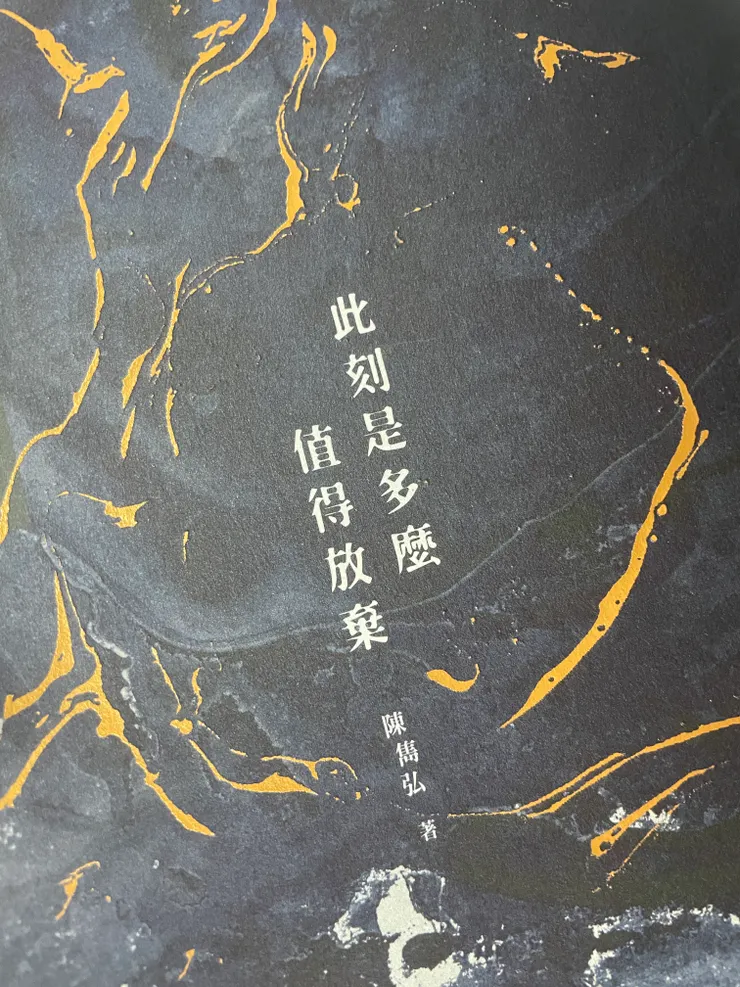 此刻是多麼
值得放棄
陳雋弘 著